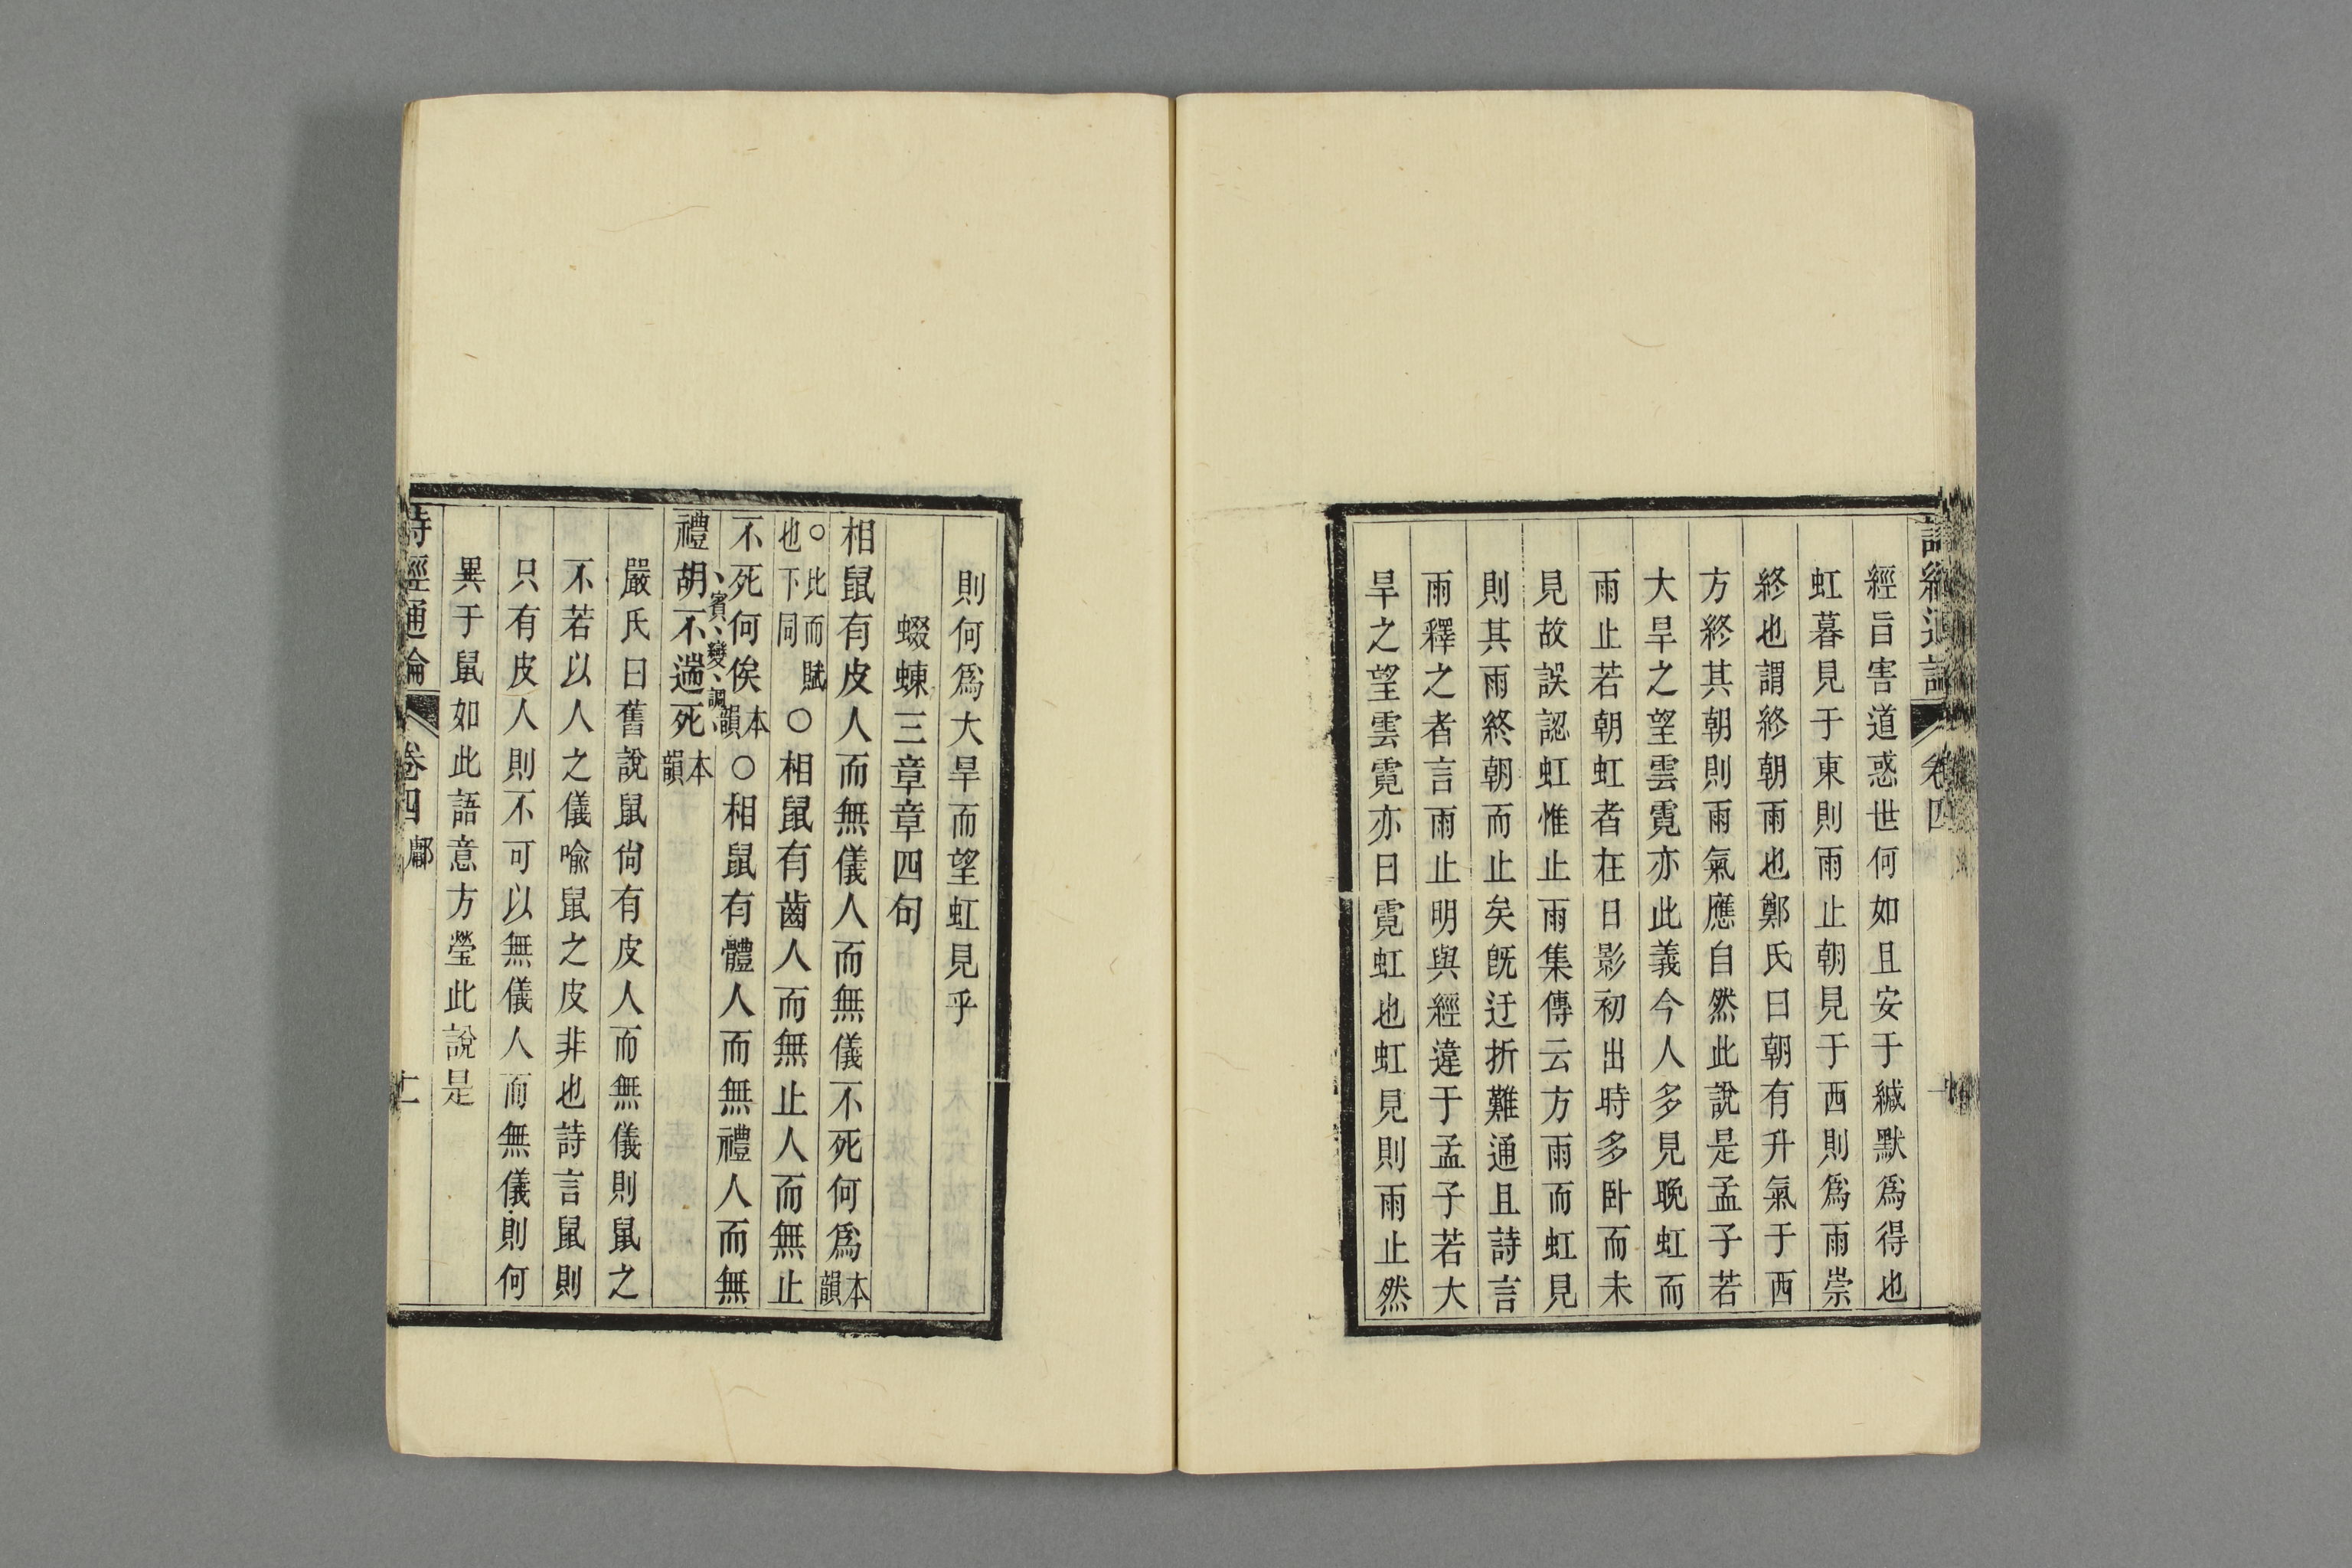 經旨害道惑世何如且安于緘默爲得也
虹暮見于東則雨止朝見于西則爲雨崇
終也謂終朝雨也鄭氏曰朝有升氣于西
方終其朝則雨氣應自然此說是孟子若
大旱之望雲霓亦此義今人多見晚虹而
雨止若朝虹者在日影初出時多卧而未
見故誤認虹惟止雨集傳云方雨而虹見
則其雨終朝而止矣旣迂折難通且詩言
雨釋之者言雨止明與經違于孟子若大
旱之望雲霓亦曰霓虹也虹見則雨止然
則何爲大旱而望虹見乎
蝃蝀三章章四句
相鼠有皮人而無儀人而無儀不死何爲本韻
○此而賦也下同○相鼠有齒人而無止人而無止
不死何俟本韻○相鼠有體人而無禮人而無
禮胡不遄死本韻
、賓、變、調、
嚴氏曰舊說鼠尙有皮人而無儀則鼠之
不若以人之儀喩鼠之皮非也詩言鼠則
只有皮人則不可以無儀人而無儀則何
異于鼠如此語意方瑩此說是
詩經通論 卷四 鄘